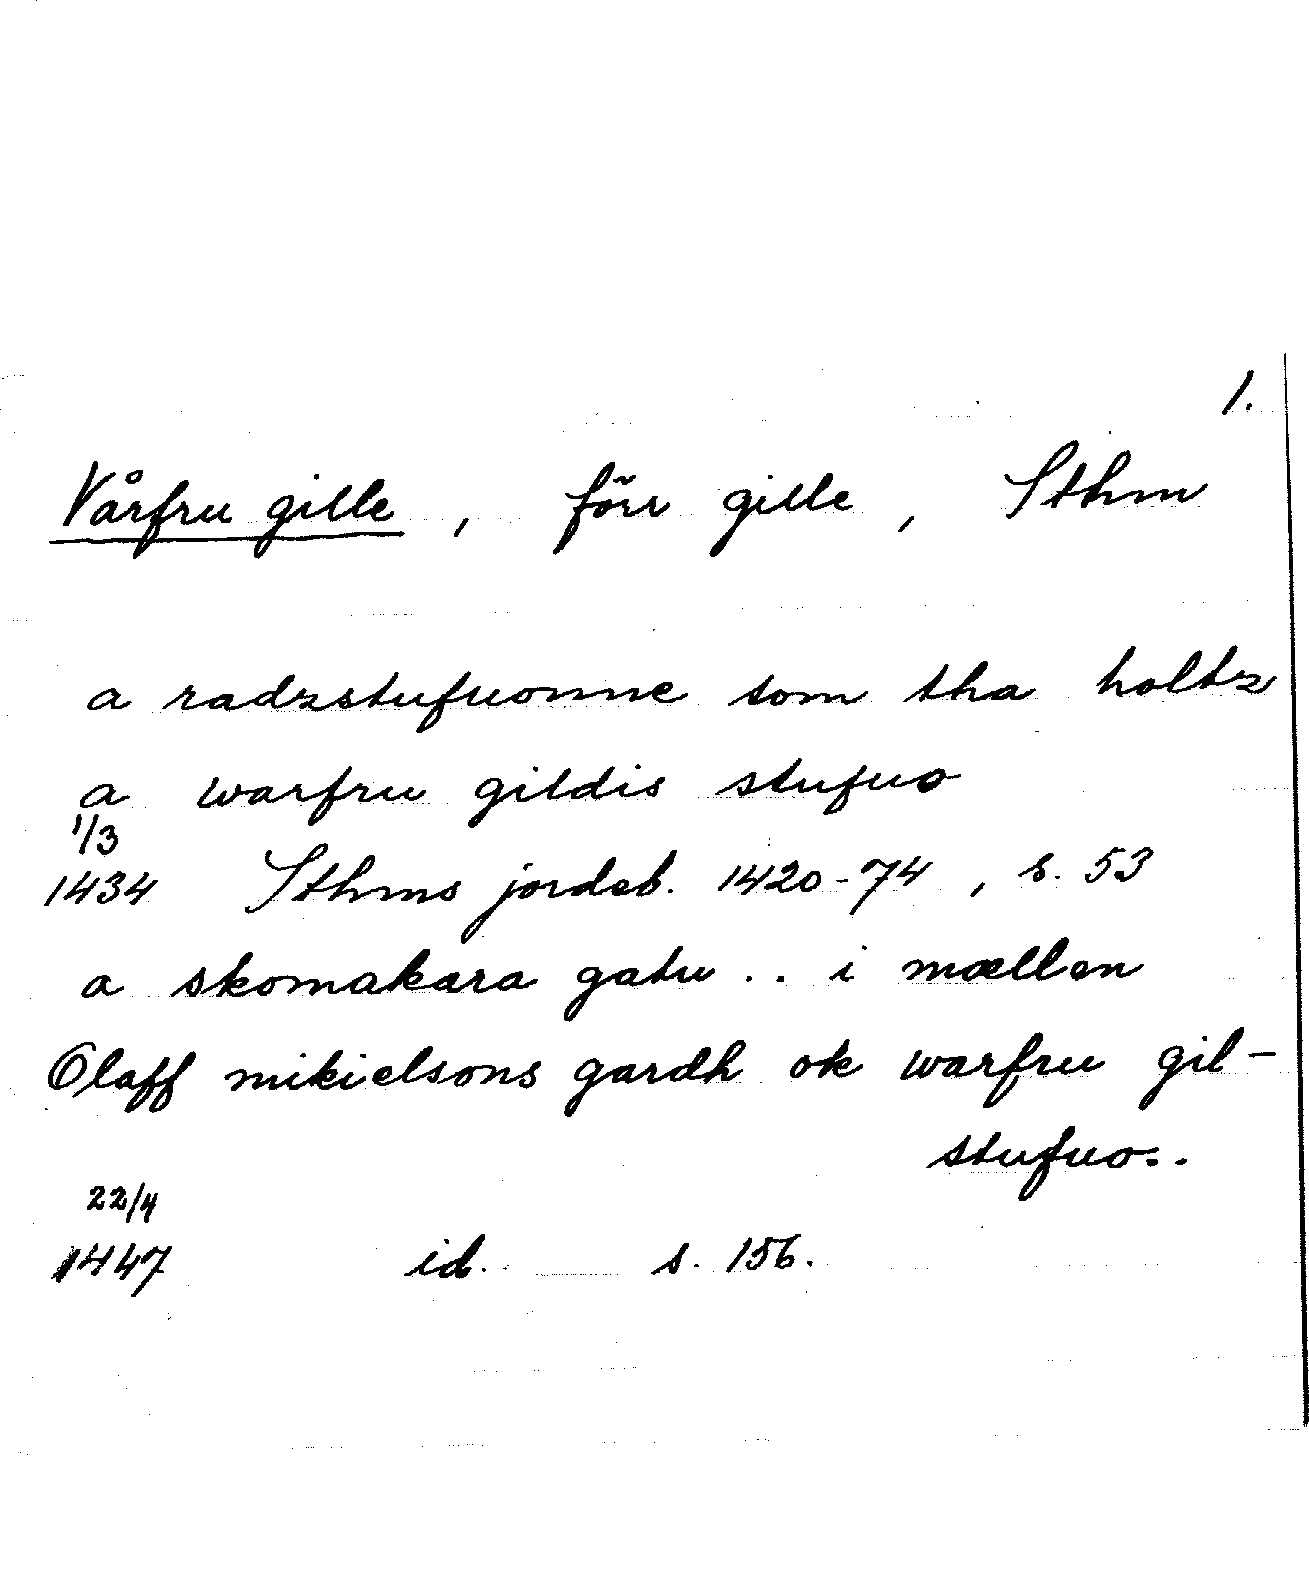 1.
Vårfru gille, förr gille, Sthm
a radzstufuonne som tha holtz
a warfru gildis stufuo
1/3
1434 Sthms jordeb. 1420-74, s. 53
a skomakara gatu .. i mællen
Olaff mikielsons gardh ok warfru gil-
stufuo..
22/4
1447 id. s. 156.